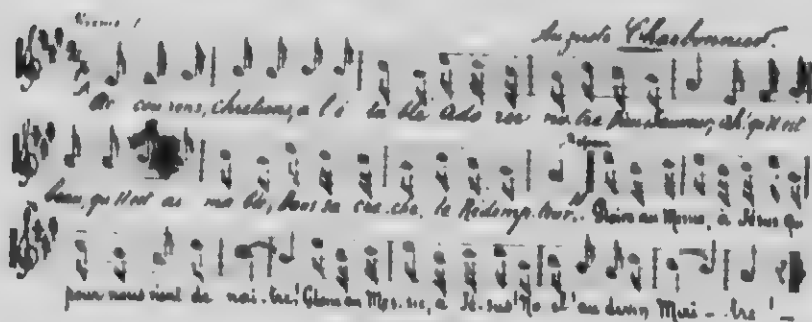 Auguste Charbonnier.
Ac cou rons, chrétiens, a l'é ta ble Ado rer no tre bien, ah! qu'il est
beau, qu'il est ai ma ble, Dans sa crè che, le Rédemp teur! Gloire au Messie, à Jésus qui
pour nous vient de naî tre! Gloire au Mes sie, à Jé sus! No ël! au divin Maî tre!